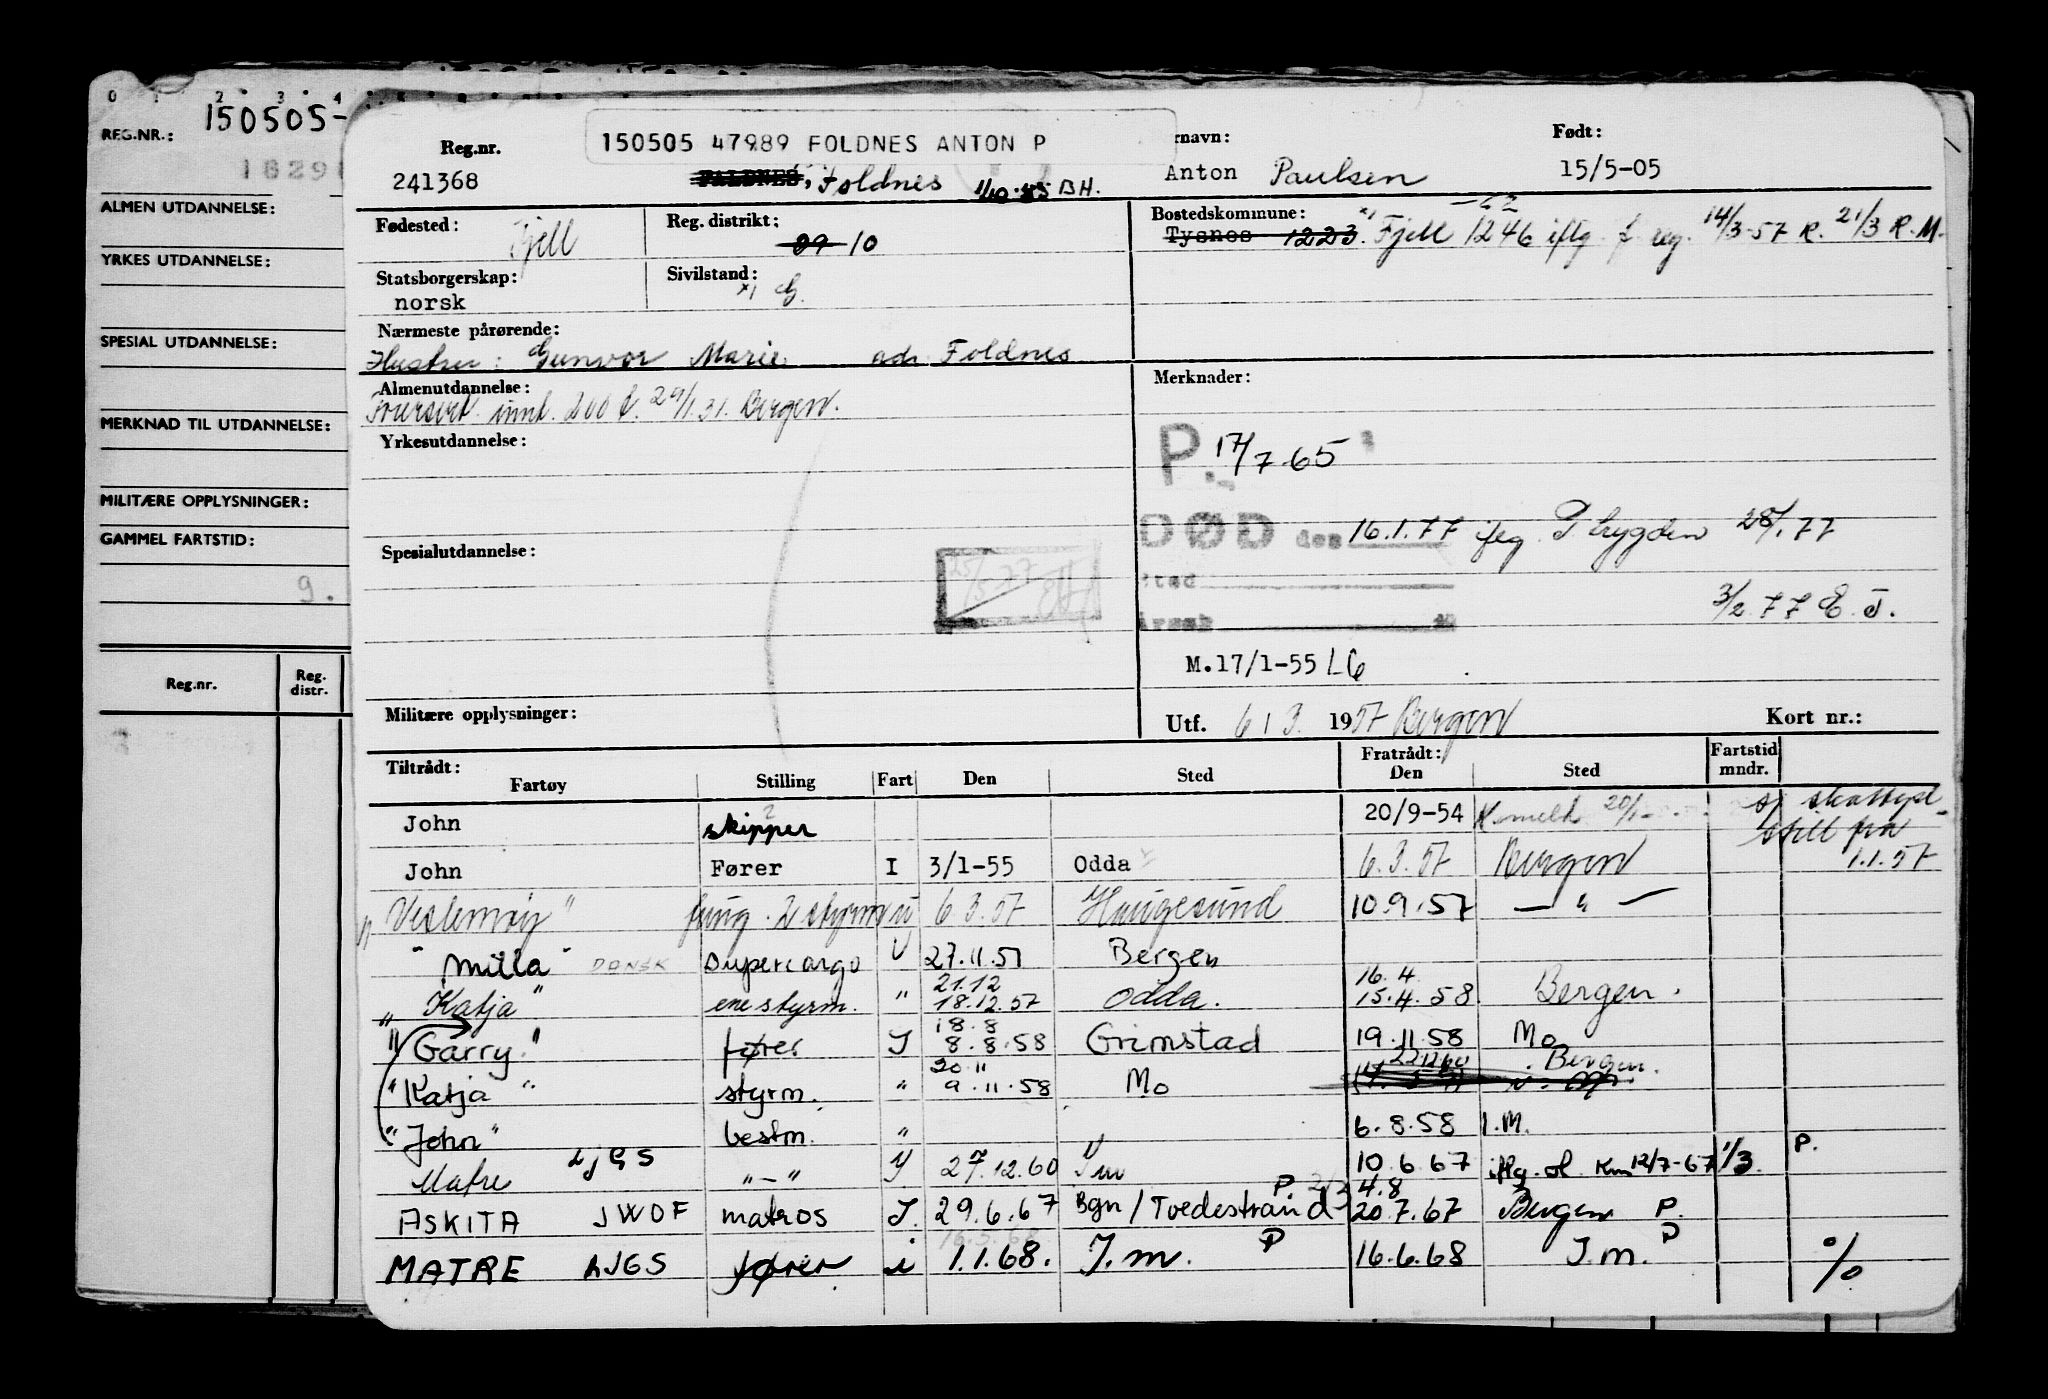 0 1 2 3 4
REG.NR.: 150505-
ALMEN UTDANNELSE:
YRKES UTDANNELSE:
SPESIAL UTDANNELSE:
MERKNAD TIL UTDANNELSE:
MILITÆRE OPPLYSNINGER:
GAMMEL FARTSTID:
9.
Reg.nr. Reg. distr.
150505 47989 FOLDNES ANTON P
Reg.nr. rnavn: Født:
241368 FALDNES, Foldnes 1/10-85 BH. Anton Paulsen 15/5-05
Fødested: Fjell Reg. distrikt: 09 10 Bostedskommune: -62
Tysnes 1223. x) Fjell 1246 iflg. f. reg. 14/3-57 R. 21/3 R.M.
Statsborgerskap: norsk Sivilstand: x) G.
Nærmeste pårørende:
Hustru: Gunvor Marie adr. Foldnes
Almenutdannelse: Merknader:
innt. 200 t. 29/1.31. Bergen.
Yrkesutdannelse:
P. 17/7-65
DØD den 16.1.77 iføg. P. bygden 28/1.77
Spesialutdannelse:
Sted
Årsak 3/2.77 E.J.
M.17/1-55 LG
Militære opplysninger:
Utf. 6/3. 1957 Bergen Kort nr.:
Tiltrådt: Fratrådt: Fartstid mndr.
Fartøy Stilling Fart Den Sted Den Sted
John skipper 20/9-54 K.melk 20/1-
still fra 1.1.57
John Fører I 3/1-55 Odda 6.3.57 Bergen
" Veslemøy " fung. 2 styrm u 6.3.57 Haugesund 10.9.57 — " —
" Milla " DANSK Supercargo U 27.11.57 Bergen
" Katja " ene styrm. " 21.12 18.12.57 Odda. 16.4 15.4.58. Bergen.
" Garry. " fører I 18.8 8.8.58 Grimstad 19.11.58 Mo
" Katja " styrm. " 20.11 9.11.58 Mo 22.12.60 Bergen.
" John " bestm. " 6.8.58 I.M.
Matre LJGS " — " I 27.12.60 Im 10.6.67 iflg. 12/7-67 1/3 P.
ASKITA JWOF matros I. 29.6.67 Bgn/Tvedestrand P 4.8 20.7.67 Bergen P.
MATRE LJGS fører i 1.1.68. I.m. P 16.6.68 I.m. P %